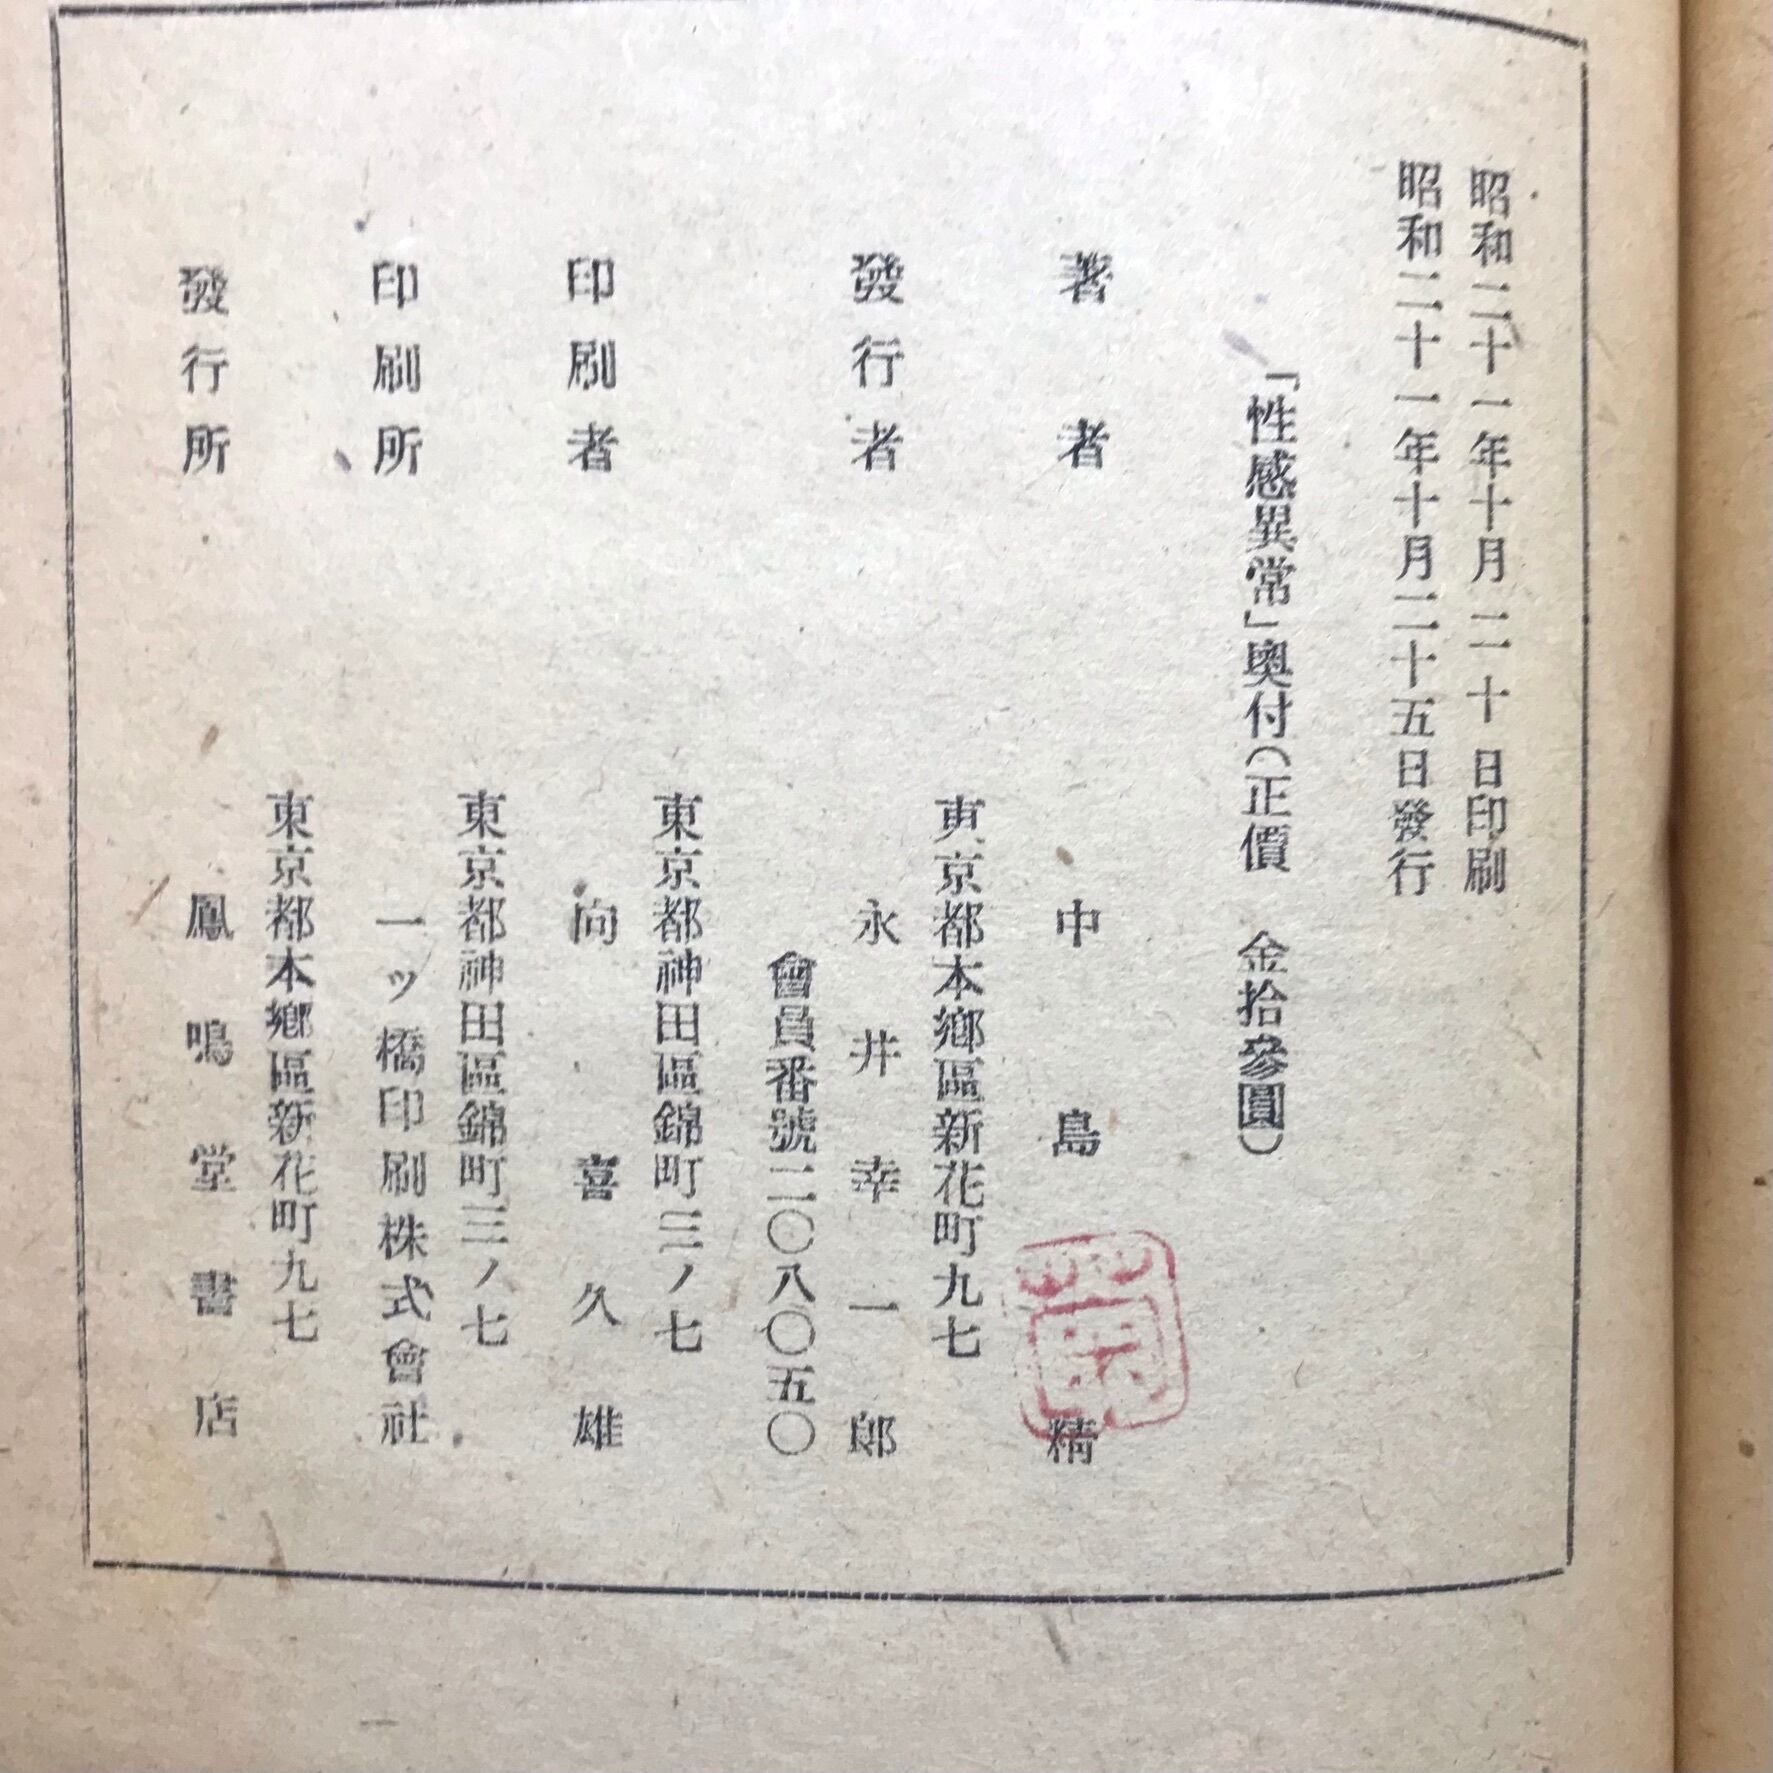 昭和二十一年十月二十日印刷
昭和二十一年十月二十五日發行
「性感異常」奧付(正價　金拾參圓)
著者　中島精
東京都本鄉區新花町九七
發行者　永井幸一郎
會員番號二〇八〇五〇
東京都神田區錦町三ノ七
印刷者　向喜久雄
東京都神田區錦町三ノ七
印刷所　一ッ橋印刷株式會社
東京都本鄉區新花町九七
發行所　鳳鳴堂書店